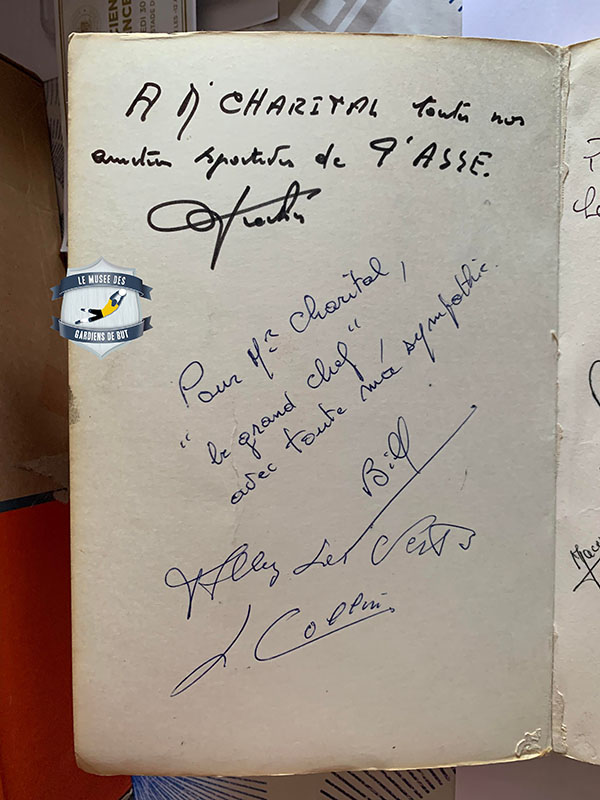 A Mr CHARITAL toutes nos
amitiés sportives de l'ASSE.
LE MUSÉE DES
GARDIENS DE BUT
Pour Mr Charital,
"le grand chef"
avec toute ma sympathie.
Bill
Allez Les Verts